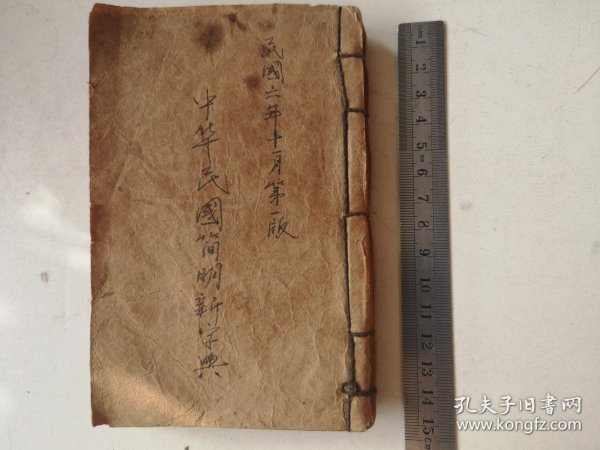 民國六年十一月第一版
中华民國简明新字典
1
2
3
4
5
6
7
8
9
10
11
12
13
14
15cm
孔夫子旧書网
www.kongfz.com